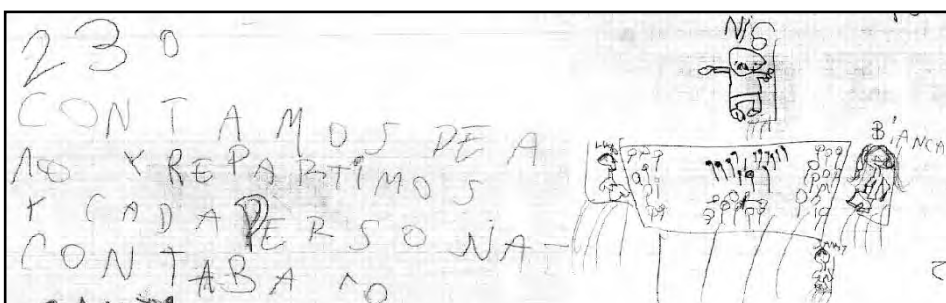 230
CONTAMOS DE A
10 Y REPARTIMOS
Y CADA PERSONA
CONTABA 10
NIO
BIANCA